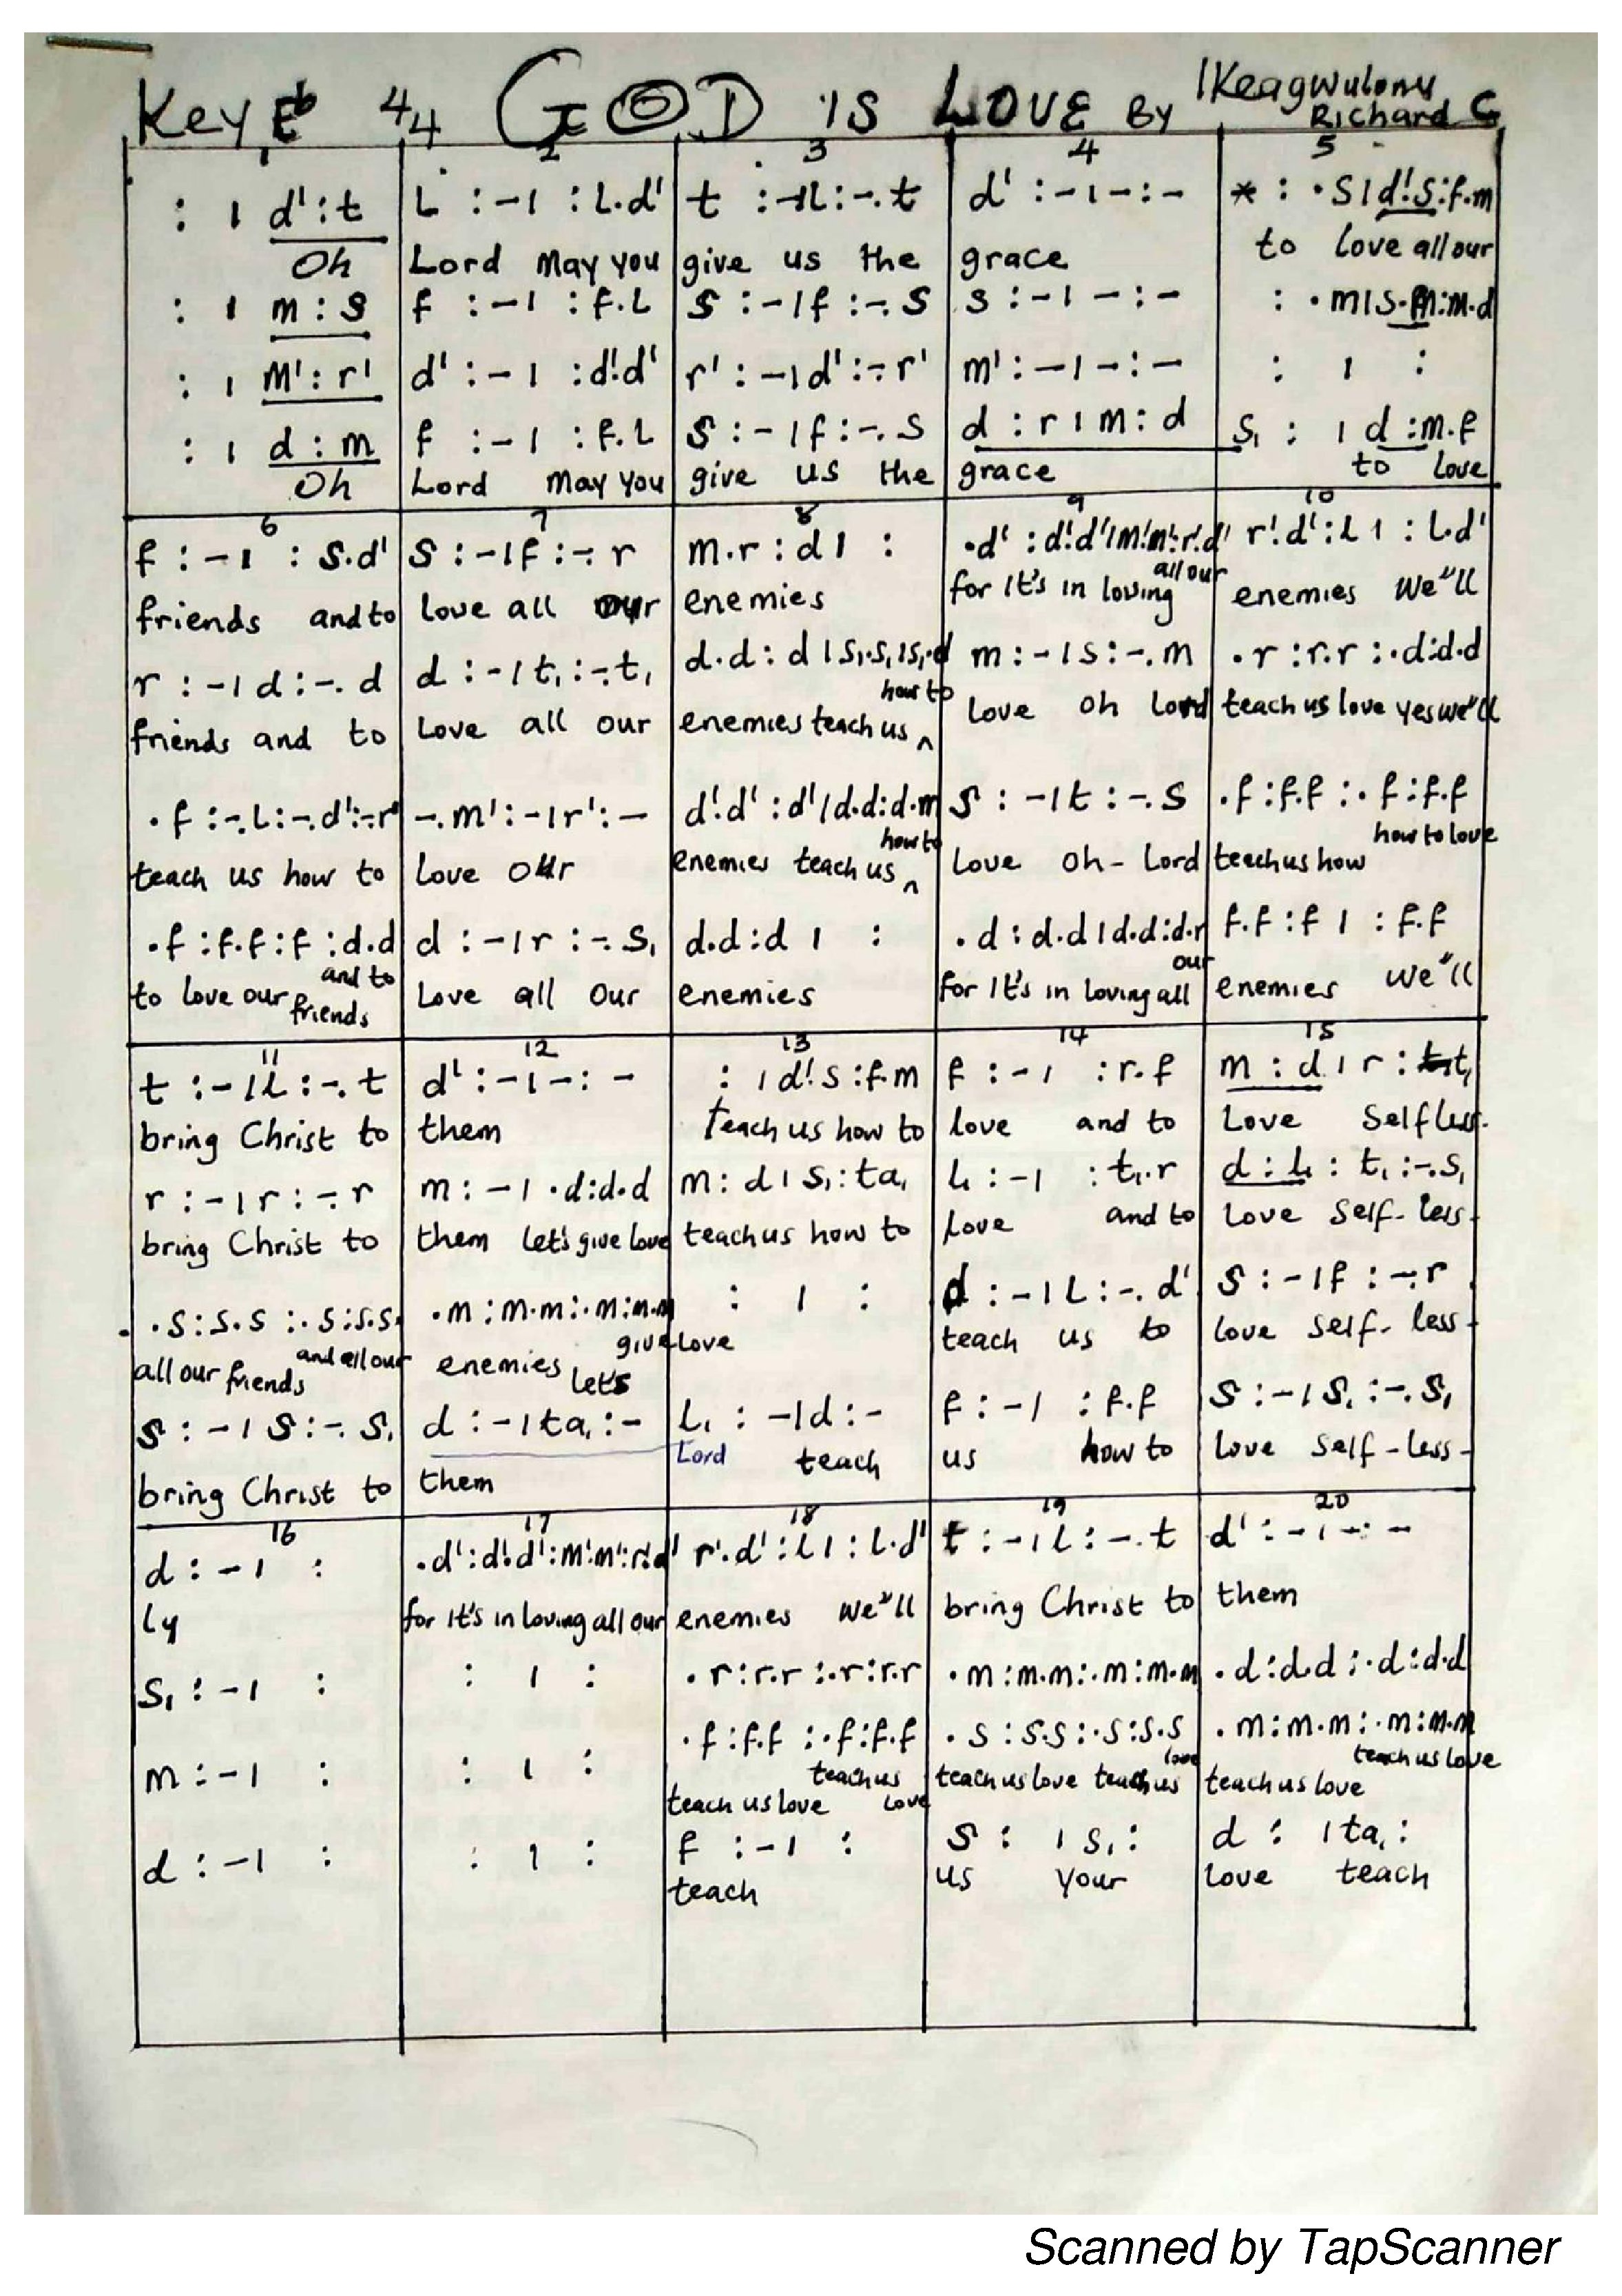 Key E♭ 4/4 GOD IS LOVE BY Ikeagwulonu Richard G
1 2 3 4 5
: | d':t | L :-| :L.d' | t :-|L:-.t | d' :-|-:- | * : .S|d'.S:f.m
Oh | Lord May you | give us the | grace | to love all our
: | m:s | f :-| :f.L | S :-|f :-.S | s :-|-:- | : .m|S.m:m.d
: | m':r' | d' :-| :d'.d' | r' :-|d':-.r' | m' :-|-:- | : | :
: | d:m | f :-| :f.L | S :-|f :-.S | d :r|m:d | S₁ : |d :m.f
Oh | Lord May you | give us the | grace | to love
6 7 8 9 10
f :-| :S.d' | S :-|f :-.r | m.r :d| : | .d' :d'.d'|m'.m':r'.d' | r'.d':L| :L.d'
friends and to | love all our | enemies | for It's in loving all our | enemies We"ll
r :-|d:-.d | d :-|t₁:-.t₁ | d.d:d|S₁.S₁|S₁.d | m:-|s:-.m | .r :r.r :.d:d.d
friends and to | Love all our | enemies teach us how to | love oh Lord | teach us love yes we"ll
.f :-.L:-.d':-.r' | -.m':-|r':- | d'.d':d'|d.d:d.m | S :-|t:-.S | .f:f.f:.f:f.f
teach us how to | love our | enemies teach us how to | Love Oh-Lord | teach us how how to love
.f:f.f:f:d.d | d :-|r :-.S₁ | d.d:d| : | .d:d.d|d.d:d.r | f.f:f| :f.f
to love our friends and to | Love all our | enemies | for It's in loving all our | enemies We"ll
11 12 13 14 15
t :-|L:-.t | d' :-|-:- | : |d'.s:f.m | f :-| :r.f | m:d|r:t₁
bring Christ to | them | teach us how to | love and to | Love Selfless-
r :-|r:-.r | m:-|.d:d.d | m:d|S₁:ta₁ | L₁:-| :t₁.r | d:L₁:t₁:-.S₁
bring Christ to | them let's give love | teach us how to | Love and to | Love Self-less-
.S:S.S:.S:S.S | .m:m.m:.m:m.m | : | : | d:-|L:-.d' | S:-|f:-.r
all our friends and all our | enemies let's give love | teach us to | love self-less-
S:-|S:-.S₁ | d:-|ta₁:- | L₁:-|d:- | f:-| :f.f | S:-|S₁:-.S₁
bring Christ to | them | Lord teach | us how to | love Self-less-
16 17 18 19 20
d:-| : | .d':d'.d':m'.m':r'.d' | r'.d':L|:L.d' | t:-|L:-.t | d':-|-:-
ly | for It's in loving all our | enemies We"ll | bring Christ to | them
S₁:-| : | : | : | .r:r.r:.r:r.r | .m:m.m:.m:m.m | .d:d.d:.d:d.d
m:-| : | : | : | .f:f.f:.f:f.f | .S:S.S:.S:S.S | .m:m.m:.m:m.m
teach us love teach us love | teach us love teach us love | teach us love teach us love
d:-| : | : | : | f:-| : | S: |S₁: | d: |ta₁:
teach | us your | love teach
Scanned by TapScanner